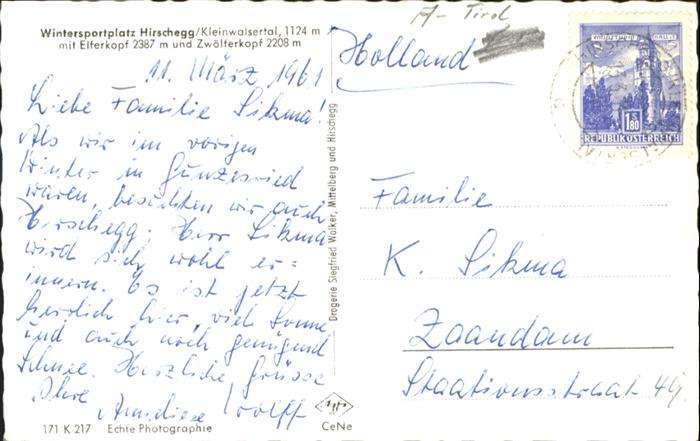 Wintersportplatz Hirschegg/Kleinwalsertal, 1124 m
mit Elferkopf 2387 m und Zwölferkopf 2208 m
A-Tirol
Holland
11. März 1961
Liebe Familie Sikma!
Als wir im vorigen
Winter in Gunzesried
waren, besuchten wir auch
Hirschegg. Herr Sikma
wird sich wohl er=
innern. Es ist jetzt
herrlich hier, viel Sonne
und auch noch genügend
Schnee. Herzliche Grüsse
Ihre
Anneliese Wolff
Drogerie Siegfried Walker, Mittelberg und Hirschegg
1 S 80
REPUBLIK ÖSTERREICH
Familie
K. Sikma
Zaandam
Staationsstraat 49
171 K 217 Echte Photographie
CeNe